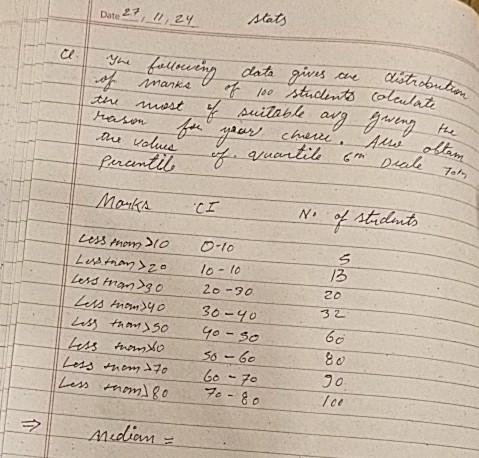 Date 27, 11, 24 stats
Q. The following data gives the distrobution
of marks of 100 students calculate
the most of suitable avg giving the
reason for your choice. Also obtain
the values of quartile 6th Decile 70th
Percentile
Marks CI No of students
Less than>10 0-10 5
Less than>20 10-10 13
Less than>30 20-30 20
Less than>40 30-40 32
Less than>50 40-50 60
Less than>60 50-60 80
Less than>70 60-70 90
Less than>80 70-80 100
⇒ Median =